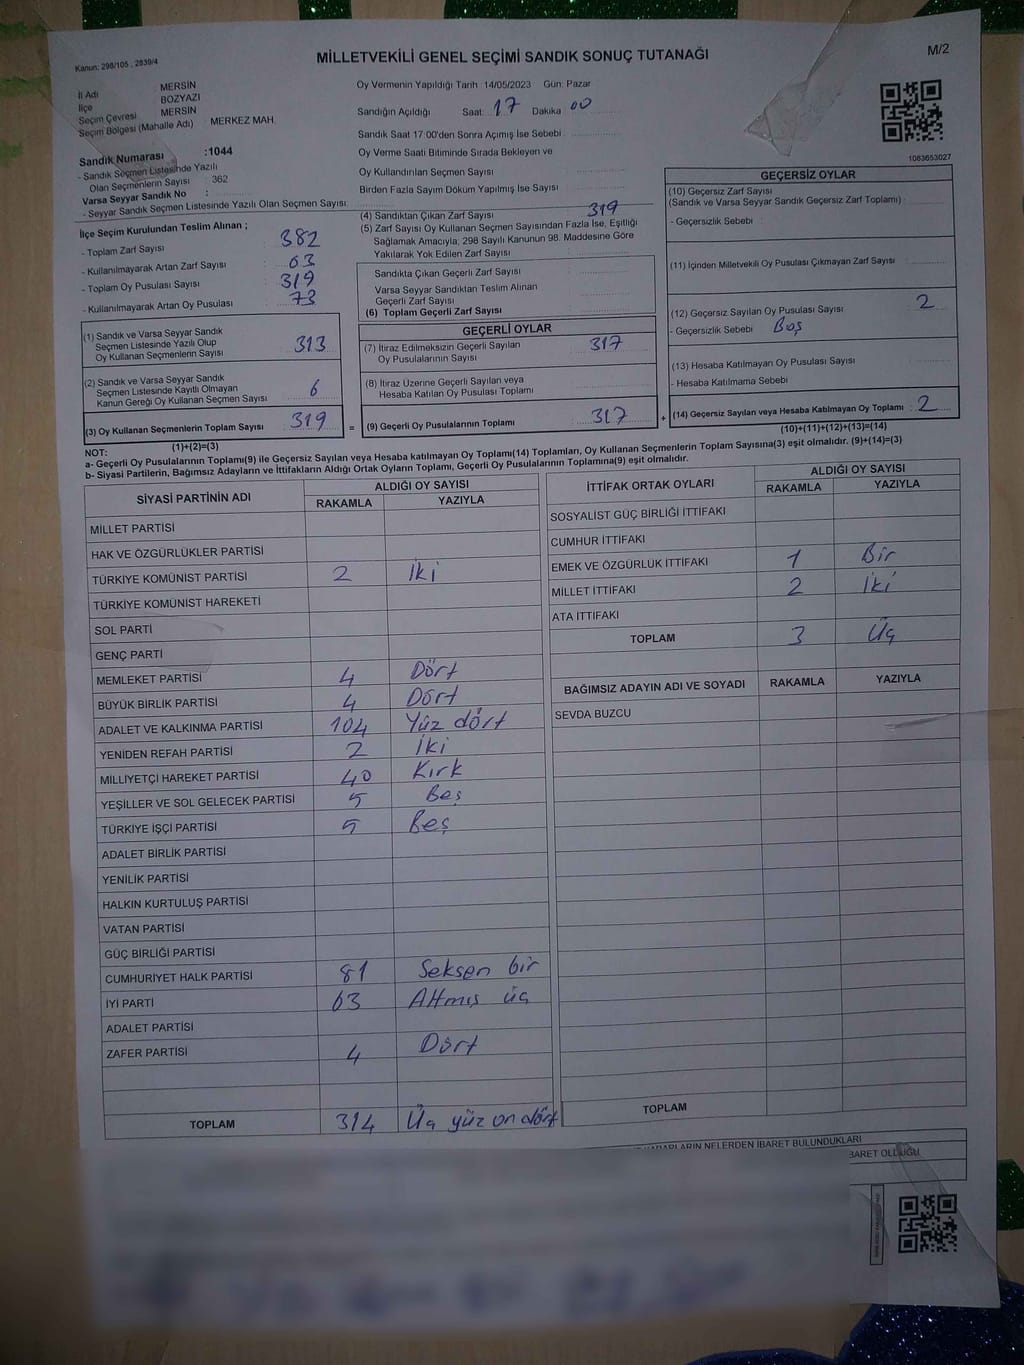 Kanun: 298/105 , 2839/4
MİLLETVEKİLİ GENEL SEÇİMİ SANDIK SONUÇ TUTANAĞI
M/2
İl Adı MERSİN
İlçe BOZYAZI
Seçim Çevresi MERSİN
Seçim Bölgesi (Mahalle Adı) MERKEZ MAH.
Sandık Numarası :1044
- Sandık Seçmen Listesinde Yazılı
Olan Seçmenlerin Sayısı : 362
Varsa Seyyar Sandık No :
- Seyyar Sandık Seçmen Listesinde Yazılı Olan Seçmen Sayısı
Oy Vermenin Yapıldığı Tarih 14/05/2023 Gün: Pazar
Sandığın Açıldığı Saat: 17 Dakika 00
Sandık Saat 17 00'den Sonra Açımış İse Sebebi
Oy Verme Saati Bitiminde Sırada Bekleyen ve
Oy Kullandırılan Seçmen Sayısı
Birden Fazla Sayım Döküm Yapılmış İse Sayısı
1083653027
İlçe Seçim Kurulundan Teslim Alınan ;
- Toplam Zarf Sayısı : 382
- Kullanılmayarak Artan Zarf Sayısı : 63
- Toplam Oy Pusulası Sayısı : 319
- Kullanılmayarak Artan Oy Pusulası : 73
(1) Sandık ve Varsa Seyyar Sandık
Seçmen Listesinde Yazılı Olup
Oy Kullanan Seçmenlerin Sayısı 313
(2) Sandık ve Varsa Seyyar Sandık
Seçmen Listesinde Kayıtlı Olmayan
Kanun Gereği Oy Kullanan Seçmen Sayısı 6
(3) Oy Kullanan Seçmenlerin Toplam Sayısı 319
(1)+(2)=(3)
(4) Sandıktan Çıkan Zarf Sayısı 319
(5) Zarf Sayısı Oy Kullanan Seçmen Sayısından Fazla İse, Eşitliği
Sağlamak Amacıyla; 298 Sayılı Kanunun 98. Maddesine Göre
Yakılarak Yok Edilen Zarf Sayısı
Sandıkta Çıkan Geçerli Zarf Sayısı
Varsa Seyyar Sandıktan Teslim Alınan
Geçerli Zarf Sayısı
(6) Toplam Geçerli Zarf Sayısı
GEÇERLİ OYLAR
(7) İtiraz Edilmeksizin Geçerli Sayılan
Oy Pusulalarının Sayısı 317
(8) İtiraz Üzerine Geçerli Sayılan veya
Hesaba Katılan Oy Pusulası Toplamı
= (9) Geçerli Oy Pusulalarının Toplamı 317 +
GEÇERSİZ OYLAR
(10) Geçersiz Zarf Sayısı
(Sandık ve Varsa Seyyar Sandık Geçersiz Zarf Toplamı)
- Geçersizlik Sebebi :
(11) İçinden Milletvekili Oy Pusulası Çıkmayan Zarf Sayısı
(12) Geçersiz Sayılan Oy Pusulası Sayısı 2
- Geçersizlik Sebebi Boş
(13) Hesaba Katılmayan Oy Pusulası Sayısı
- Hesaba Katılmama Sebebi
(14) Geçersiz Sayılan veya Hesaba Katılmayan Oy Toplamı : 2
(10)+(11)+(12)+(13)=(14)
NOT:
a- Geçerli Oy Pusulalarının Toplamı(9) ile Geçersiz Sayılan veya Hesaba katılmayan Oy Toplamı(14) Toplamları, Oy Kullanan Seçmenlerin Toplam Sayısına(3) eşit olmalıdır. (9)+(14)=(3)
b- Siyasi Partilerin, Bağımsız Adayların ve İttifakların Aldığı Ortak Oyların Toplamı, Geçerli Oy Pusulalarının Toplamına(9) eşit olmalıdır.
SİYASİ PARTİNİN ADI ALDIĞI OY SAYISI
RAKAMLA YAZIYLA
MİLLET PARTİSİ
HAK VE ÖZGÜRLÜKLER PARTİSİ
TÜRKİYE KOMÜNİST PARTİSİ 2 İki
TÜRKİYE KOMÜNİST HAREKETİ
SOL PARTİ
GENÇ PARTİ
MEMLEKET PARTİSİ 4 Dört
BÜYÜK BİRLİK PARTİSİ 4 Dört
ADALET VE KALKINMA PARTİSİ 104 Yüz dört
YENİDEN REFAH PARTİSİ 2 İki
MİLLİYETÇİ HAREKET PARTİSİ 40 Kırk
YEŞİLLER VE SOL GELECEK PARTİSİ 5 Beş
TÜRKİYE İŞÇİ PARTİSİ 5 Beş
ADALET BİRLİK PARTİSİ
YENİLİK PARTİSİ
HALKIN KURTULUŞ PARTİSİ
VATAN PARTİSİ
GÜÇ BİRLİĞİ PARTİSİ
CUMHURİYET HALK PARTİSİ 81 Seksen bir
İYİ PARTİ 63 Altmış üç
ADALET PARTİSİ
ZAFER PARTİSİ 4 Dört
TOPLAM 314 Üç yüz on dört
İTTİFAK ORTAK OYLARI ALDIĞI OY SAYISI
RAKAMLA YAZIYLA
SOSYALİST GÜÇ BİRLİĞİ İTTİFAKI
CUMHUR İTTİFAKI
EMEK VE ÖZGÜRLÜK İTTİFAKI 1 Bir
MİLLET İTTİFAKI 2 İki
ATA İTTİFAKI
TOPLAM 3 Üç
BAĞIMSIZ ADAYIN ADI VE SOYADI RAKAMLA YAZIYLA
SEVDA BUZCU
TOPLAM
KARARLARIN NELERDEN İBARET BULUNDUKLARI
İBARET OLDUĞU